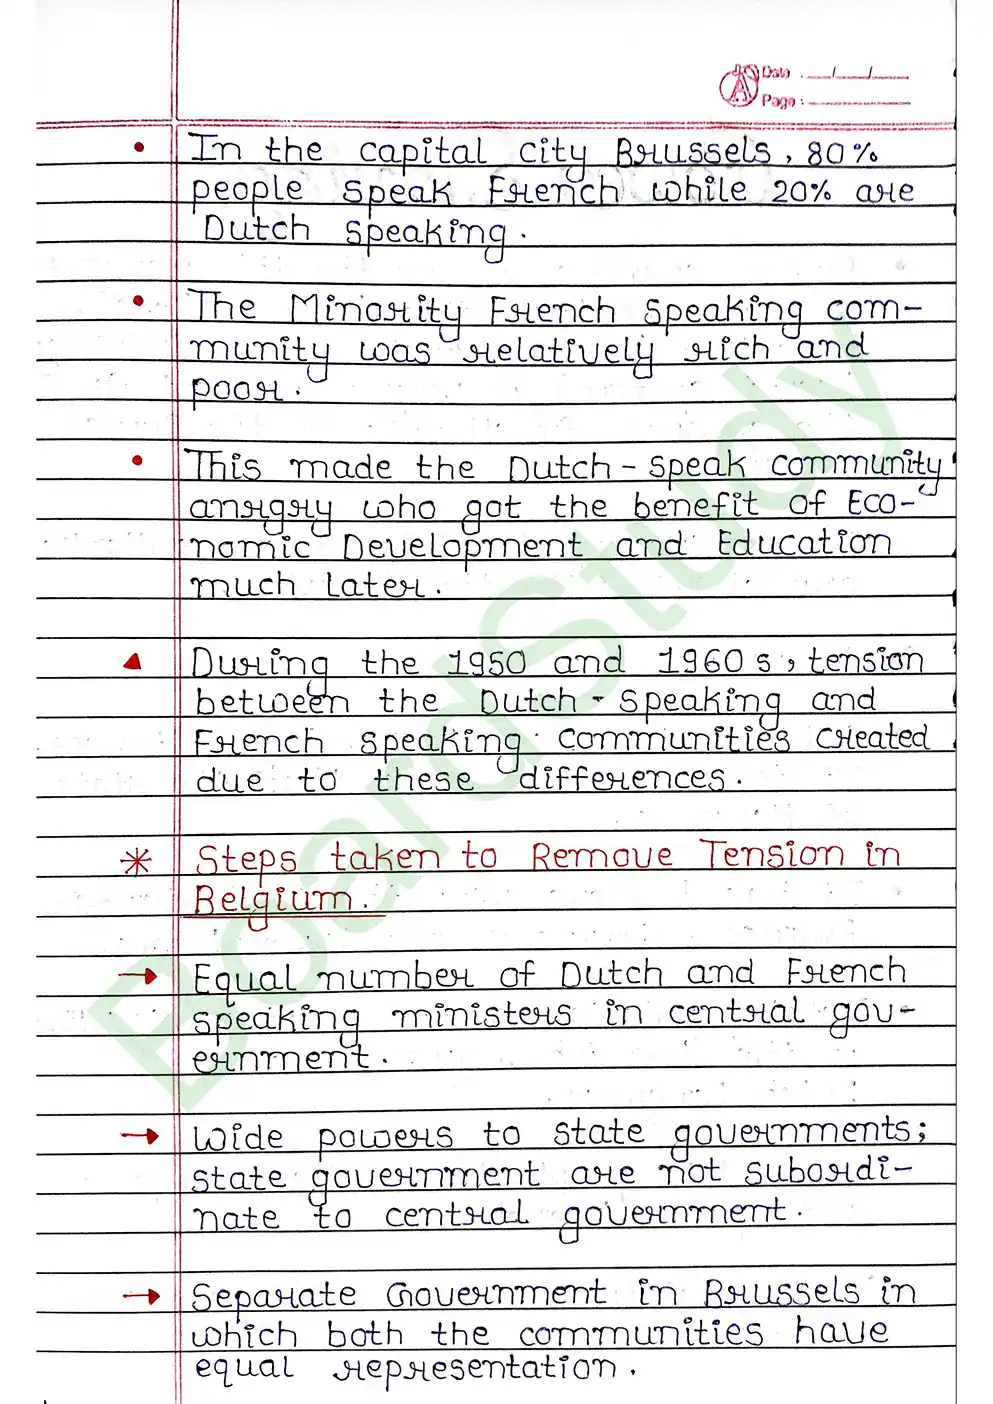 Date : __/__/__
Page : ________
• In the capital city Brussels, 80%
people speak French while 20% are
Dutch speaking.
• The Minority French speaking com-
munity was relatively rich and
poor.
• This made the Dutch-speak community
anrgry who got the benefit of Eco-
nomic Development and Education
much later.
▲ During the 1950 and 1960s, tension
between the Dutch-speaking and
French speaking communities created
due to these differences.
* Steps taken to Remove Tension in
Belgium.
→ Equal number of Dutch and French
speaking ministers in central gov-
ernment.
→ Wide powers to state governments;
state government are not subordi-
nate to central government.
→ Separate Government in Brussels in
which both the communities have
equal representation.
BoardStudy